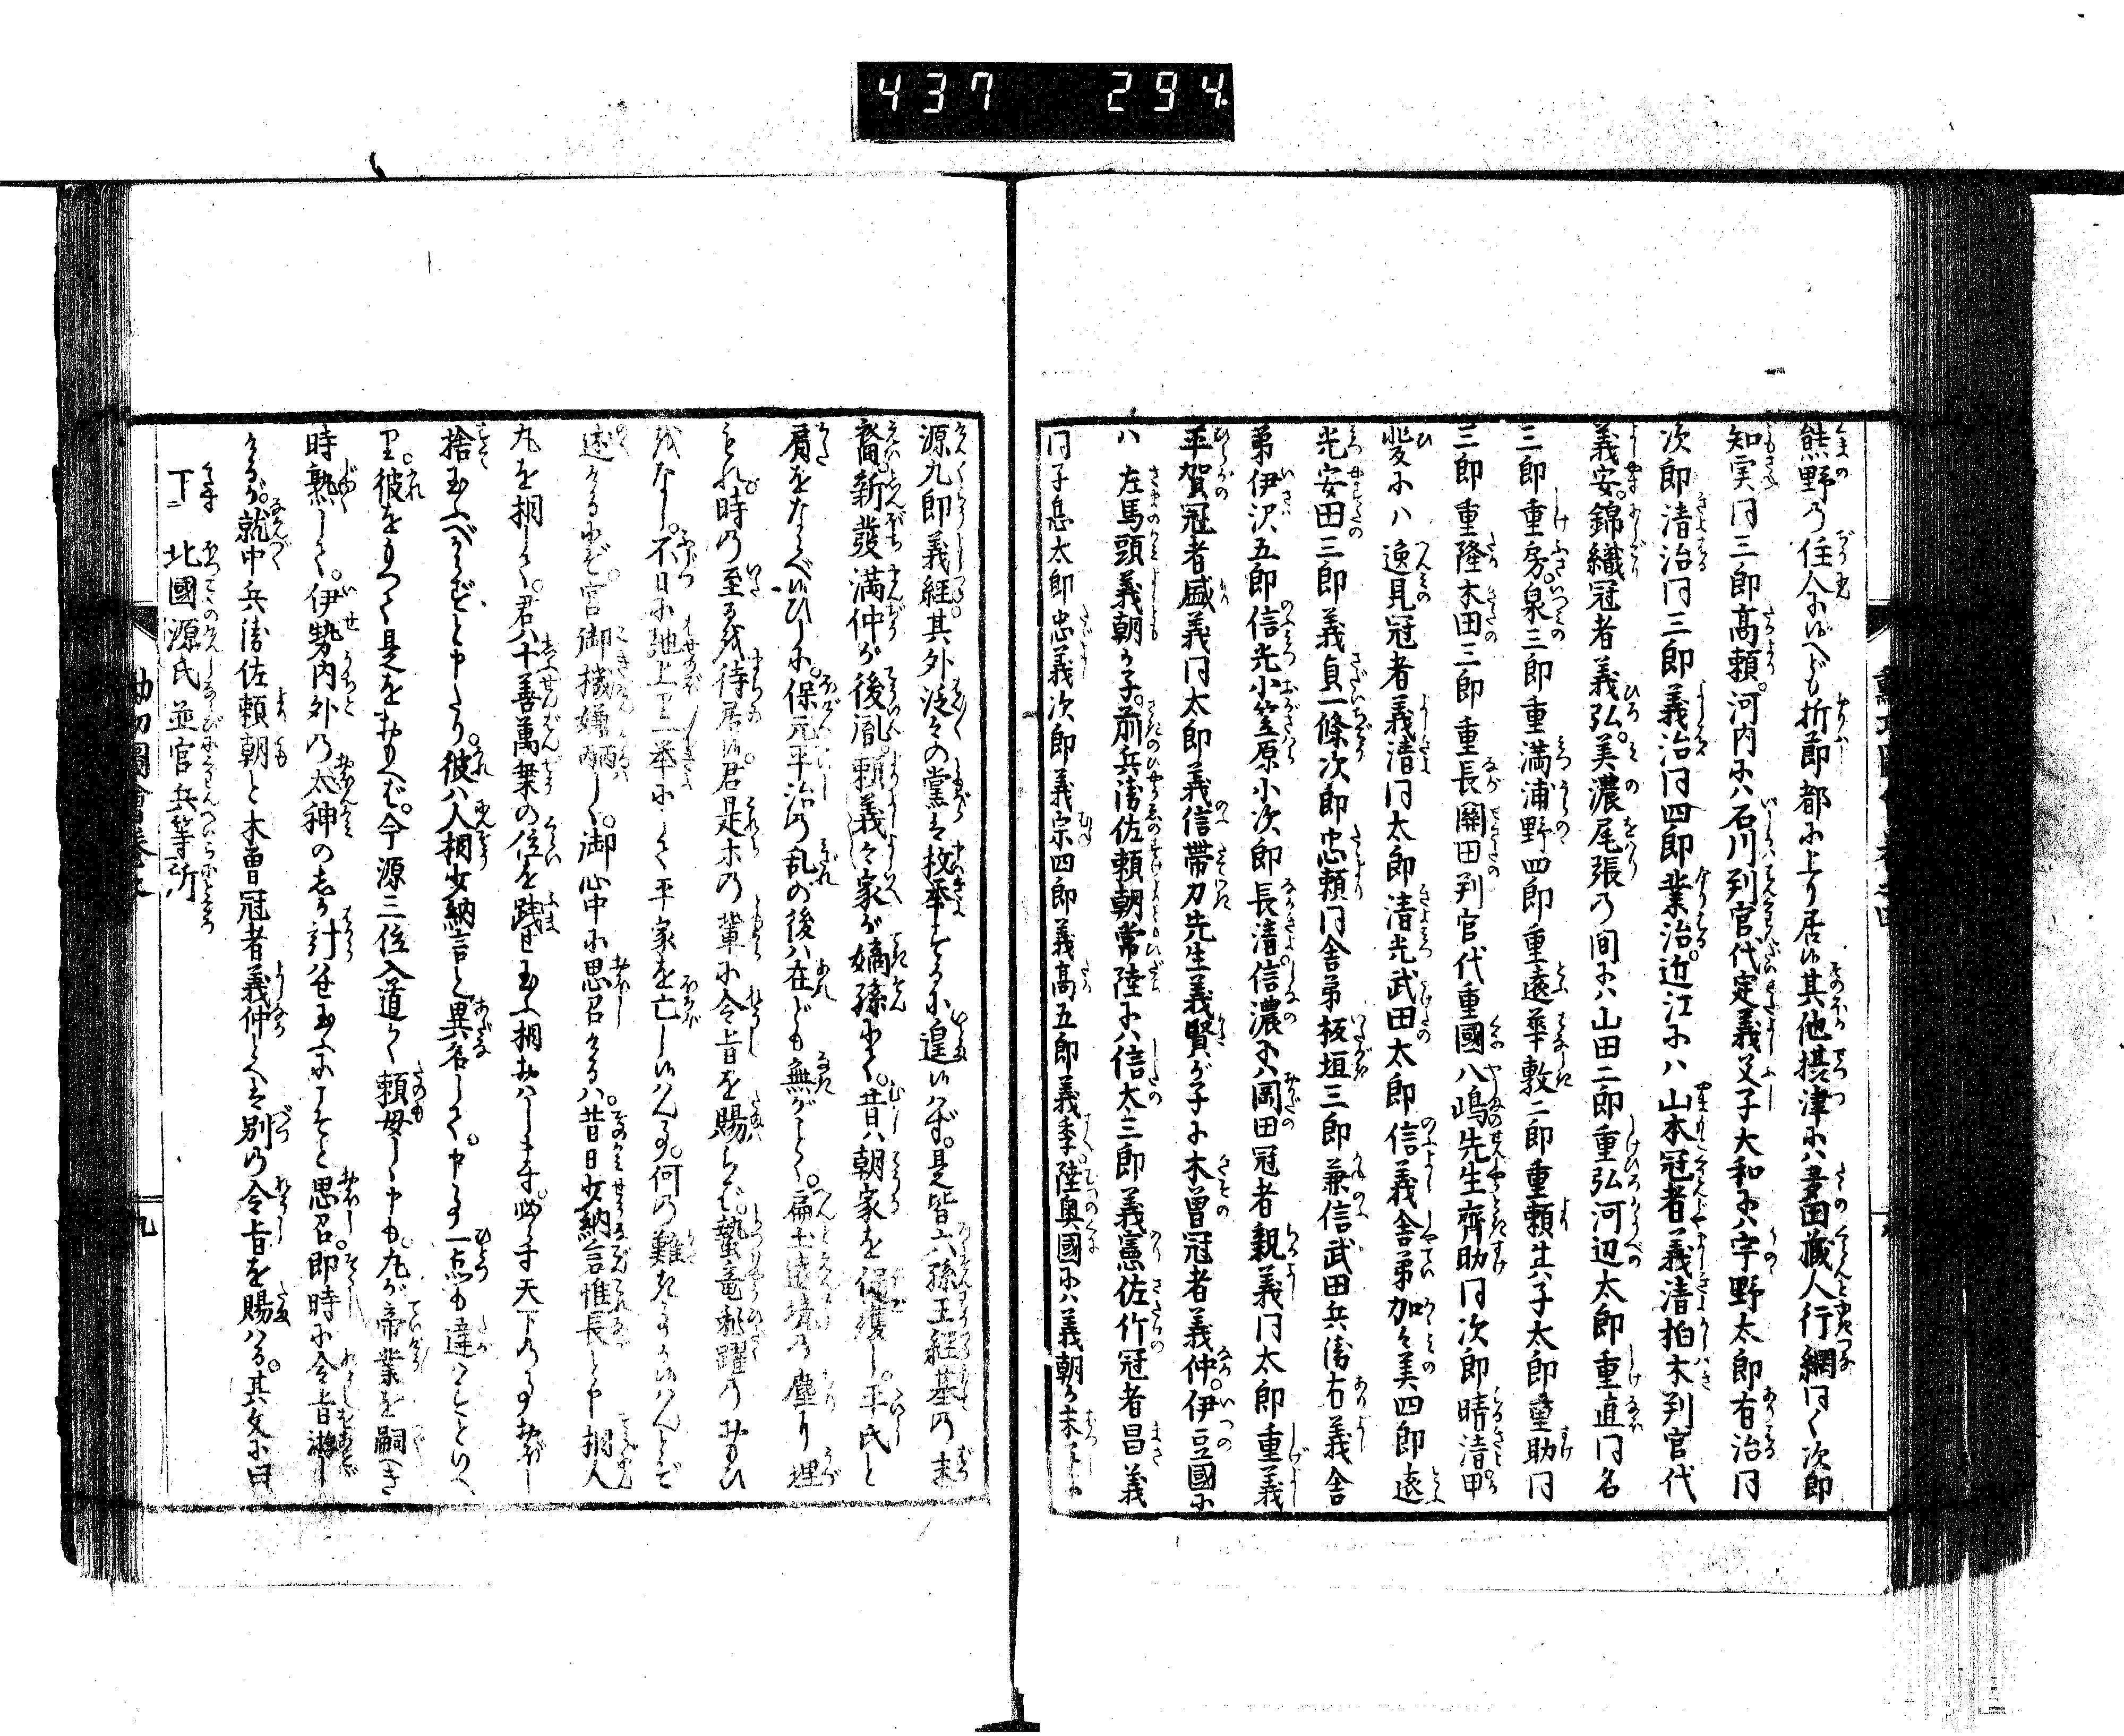 437 294
熊野の住人に候へども折節都に上り居候其他摂津には多田蔵人行綱同く次郎
知実同三郎高頼。河内には石川判官代定義父子大和には宇野太郎有治同
次郎清治同三郎義治同四郎業治。近江には山本冠者義清柏木判官代
義安。錦織冠者義弘。美濃尾張の間には山田二郎重弘河辺太郎重直同名
三郎重房。泉三郎重満浦野四郎重遠葦敷二郎重頼其子太郎重助同
三郎重隆木田三郎重長関田判官代重國八嶋先生斉助同次郎晴清甲
斐には逸見冠者義清同太郎清光武田太郎信義舎弟加々美四郎遠
光安田三郎義貞一條次郎忠頼同舎弟板垣三郎兼信武田兵衛有義舎
弟伊沢五郎信光小笠原小次郎長清信濃には岡田冠者親義同太郎重義
平賀冠者盛義同太郎義信帯刀先生義賢が子に木曽冠者義仲。伊豆國に
ハ左馬頭義朝が子。前兵衛佐頼朝常陸には信太三郎義憲佐竹冠者昌義
同子息太郎忠義次郎義宗四郎義高五郎義季陸奥國には義朝が末子に
源九郎義経其外泛々の黨は枚挙するに遑候はず。是皆六孫王経基の末
裔新發満仲が後胤頼義々家が嫡孫にて。昔は朝家を保護し。平氏と
肩をならべ候ひしに。保元平治の乱の後は在ども無がごとく。扁土遠境の塵に埋
もれ。時の至るを待居候君是等の輩に令旨を賜らば蟄竜飛躍のおもひ
をなし。不日に馳上り一挙にして平家を亡し候はん事。何の難き事か候はんとぞ
述ける宮御機嫌斜して。御心中に思召けるは。昔日少納言惟長と申相人
丸を相して。君は十善萬乗の位を践せ玉ふ相おはします。必らず天下の事おぼし
捨玉ふべからずと申たり。彼は人相少納言と異名して。申事一点も違はずといへ
り。彼をもつて是をおもへば。今源三位入道かく頼母しく申も。丸が帝業を嗣べき
時熟して。伊勢内外の太神の志か計はせ玉ふにこそと思召即時に令旨
けるが。就中兵衛佐頼朝と木曽冠者義仲へは別の令旨を賜はる。其文に曰
下 北國源氏並官兵等所
九